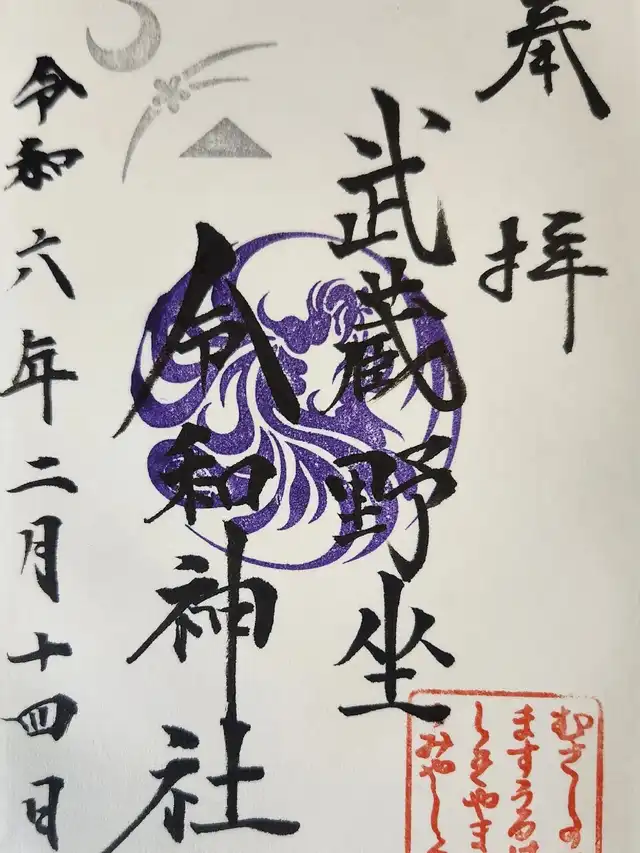 奉拝
武蔵野坐
令和神社
令和六年二月十四日
むさしの
ますうるは
しきやま
みやしろ